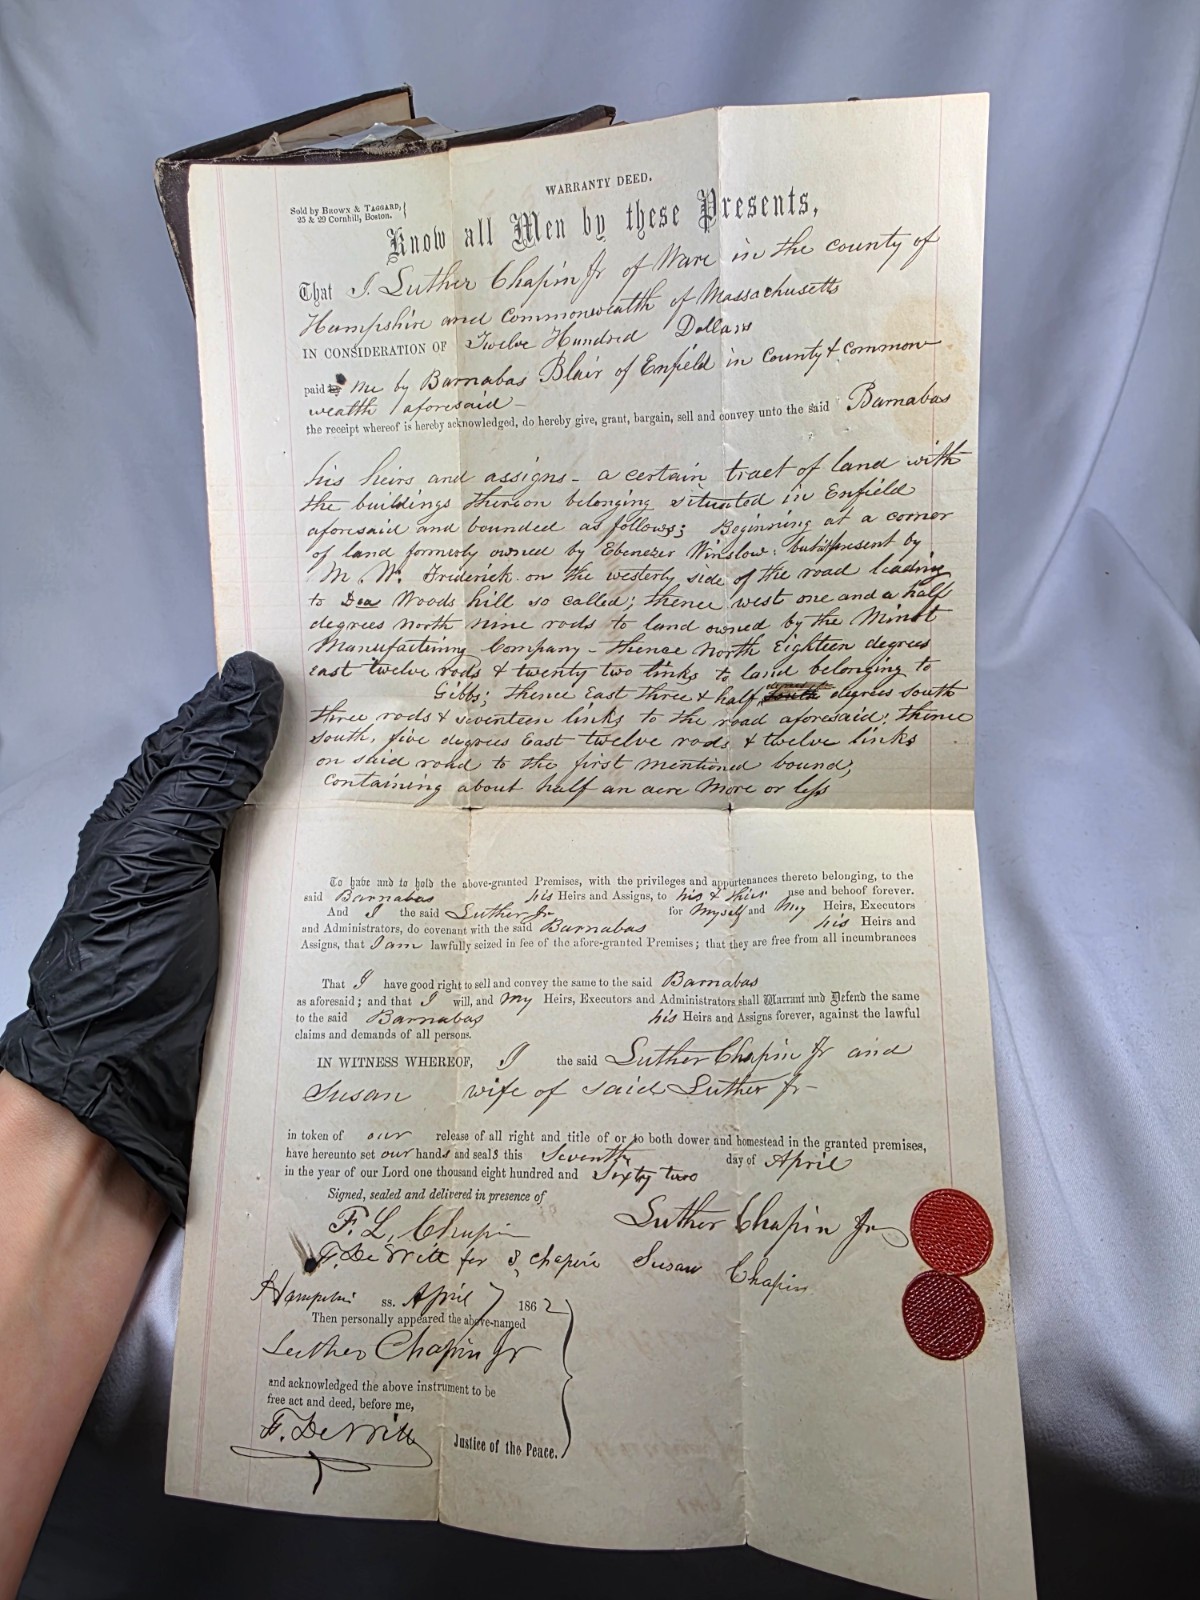 WARRANTY DEED.
Sold by BROWN & TAGGARD,
25 & 29 Cornhill, Boston.
Know all Men by these Presents,
That I. Luther Chapin Jr of Ware in the county of
Hampshire and Commonwealth of Massachusetts
IN CONSIDERATION OF Twelve Hundred Dollars
paid by me by Barnabas Blair of Enfield in County & common
wealth aforesaid -
the receipt whereof is hereby acknowledged, do hereby give, grant, bargain, sell and convey unto the said Barnabas
his heirs and assigns - a certain tract of land with
the buildings thereon belonging situated in Enfield
aforesaid and bounded as follows; Beginning at a corner
of land formerly owned by Ebenezer Winslow: but at present by
M. W. Frederick on the westerly side of the road leading
to Dea Woods hill so called; thence west one and a half
degrees north nine rods to land owned by the Minot
Manufacturing Company - thence North Eighteen degrees
east twelve rods & twenty two links to land belonging to
Gibbs; thence East three & half degrees south
three rods & seventeen links to the road aforesaid; thence
south, five degrees East twelve rods & twelve links
on said road to the first mentioned bound,
containing about half an acre More or less
To have and to hold the above-granted Premises, with the privileges and appurtenances thereto belonging, to the
said Barnabas his Heirs and Assigns, to his & their use and behoof forever.
And I the said Luther Jr for Myself and My Heirs, Executors
and Administrators, do covenant with the said Barnabas his Heirs and
Assigns, that I am lawfully seized in fee of the afore-granted Premises; that they are free from all incumbrances
That I have good right to sell and convey the same to the said Barnabas
as aforesaid; and that I will, and My Heirs, Executors and Administrators shall Warrant and Defend the same
to the said Barnabas his Heirs and Assigns forever, against the lawful
claims and demands of all persons.
IN WITNESS WHEREOF, I the said Luther Chapin Jr and
Susan wife of said Luther Jr -
in token of our release of all right and title of or to both dower and homestead in the granted premises,
have hereunto set our hands and seals this Seventh day of April
in the year of our Lord one thousand eight hundred and Sixty two
Signed, sealed and delivered in presence of
F. L. Chapin Luther Chapin Jr
F. De Witt for S. Chapin Susan Chapin
Hampshire ss. April 7 1862
Then personally appeared the above-named
Luther Chapin Jr
and acknowledged the above instrument to be
free act and deed, before me,
F. De Witt Justice of the Peace.